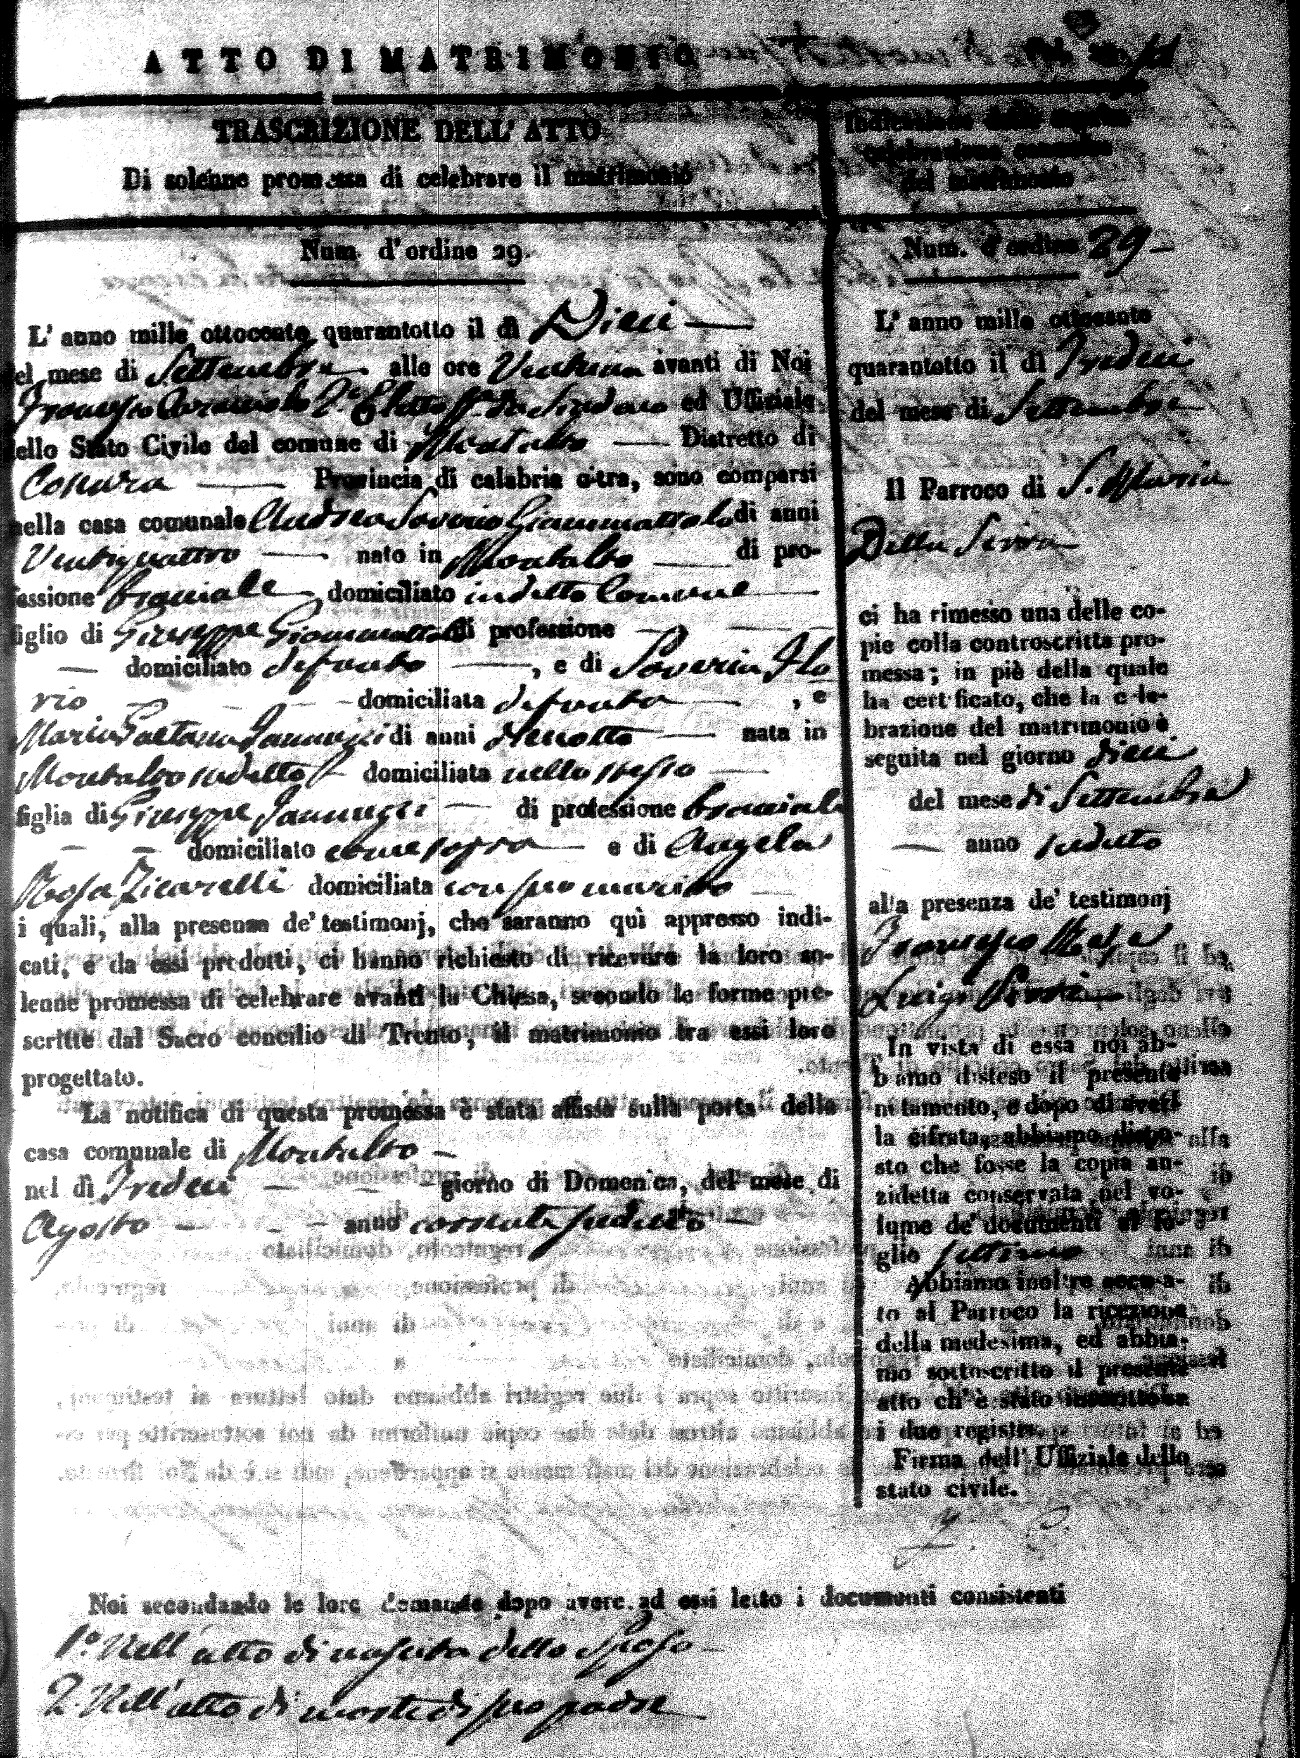 ATTO DI MATRIMONIO
TRASCRIZIONE DELL' ATTO
Di solenne promessa di celebrare il matrimonio
Num. d'ordine 29.
L' anno mille ottocento quarantotto il dì Dieci
del mese di Settembre alle ore Ventuna avanti di Noi
Francesco 2° Eletto ff. da Sindaco ed Uffiziale
dello Stato Civile del comune di Montalto Distretto di
Cosenza Provincia di calabria citra, sono comparsi
nella casa comunale Andrea Saverio Giammattolo di anni
Ventiquattro nato in Montalto di pro-
fessione bracciale domiciliato in detto Comune
figlio di Giuseppe Giammattolo di professione
domiciliato defunto, e di Saveria Flo
rio domiciliata defunta, e
Maria Gaetana Iannuzzi di anni diciotto nata in
Montalto sudetto domiciliata nello stesso
figlia di Giuseppe Iannuzzi di professione bracciale
domiciliato come sopra e di Angela
Rosa Zicarelli domiciliata con suo marito
i quali, alla presenza de' testimonj, che saranno quì appresso indi-
cati, e da essi prodotti, ci hanno richiesto di ricevere la loro so-
lenne promessa di celebrare avanti la Chiesa, secondo le forme pre-
scritte dal Sacro concilio di Trento, il matrimonio tra essi loro
progettato.
La notifica di questa promessa è stata affissa sulla porta della
casa comunale di Montalto
nel dì Tredici giorno di Domenica, del mese di
Agosto anno corrente sudetto
Indicazione della seguita
celebrazione canonica
del matrimonio
Num. d'ordine 29
L' anno mille ottocento
quarantotto il dì Tredici
del mese di Settembre
Il Parroco di S. Maria
Della Serra
ci ha rimesso una delle co-
pie colla controscritta pro-
messa; in piè della quale
ha certificato, che la cele-
brazione del matrimonio è
seguita nel giorno dieci
del mese di Settembre
anno sudetto
alla presenza de' testimonj
Francesco
Luigi
In vista di essa noi ab-
biamo disteso il presente
notamento, e dopo di aver-
la cifrata, abbiamo dispo-
sto che fosse la copia an-
zidetta conservata nel vo-
lume de' documenti al fo-
glio settimo
Abbiamo inoltre accusa-
to al Parroco la ricezione
della medesima, ed abbia-
mo sottoscritto il presente
atto ch'è stato inscritto
i due registri.
Firma dell' Uffiziale dello
stato civile.
Noi secondando le loro domande dopo avere ad essi letto i documenti consistenti
1.° Nell' atto di nascita dello sposo
2. Nell' atto di morte di suo padre